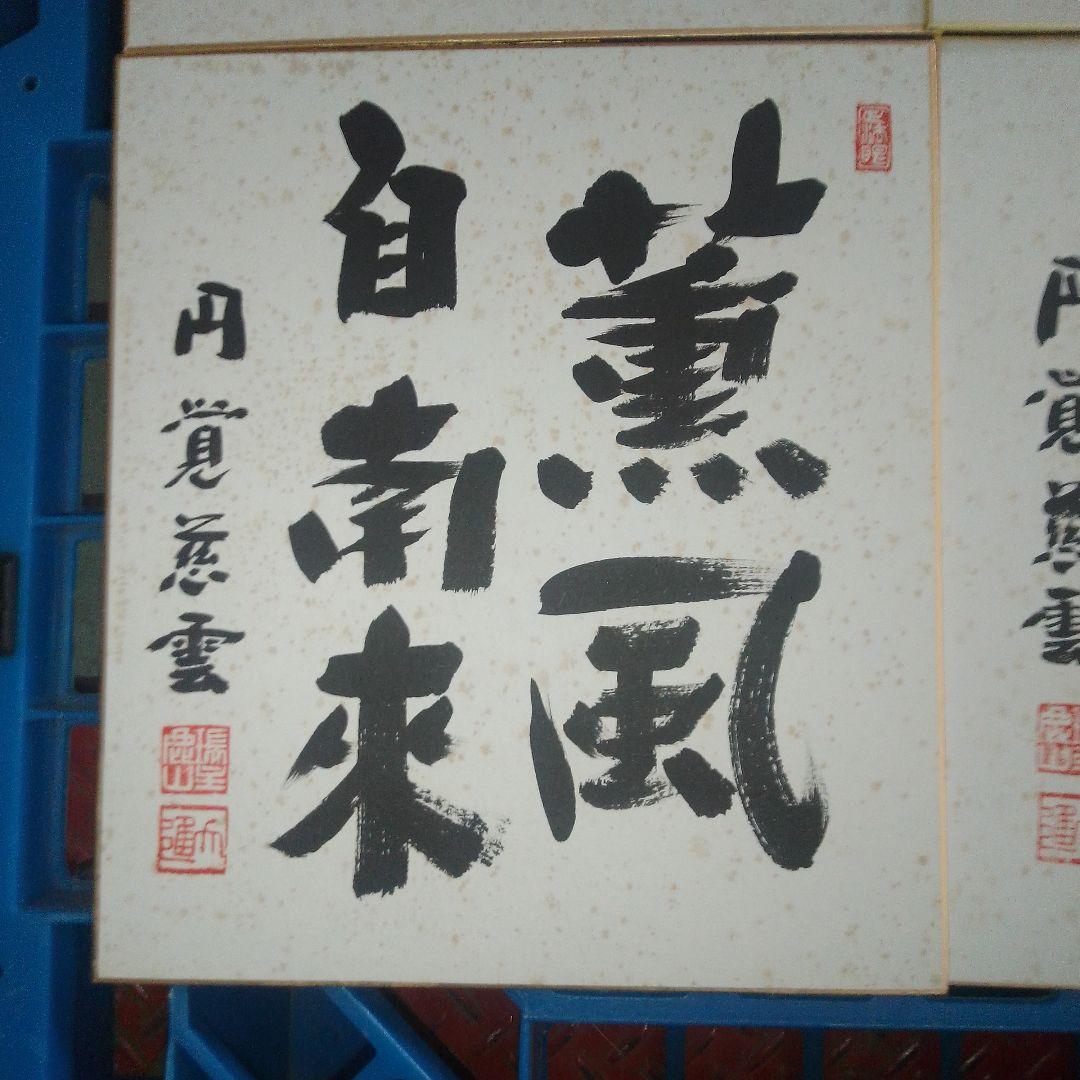 薫風
自南來
円覚慈雲
円覚慈雲